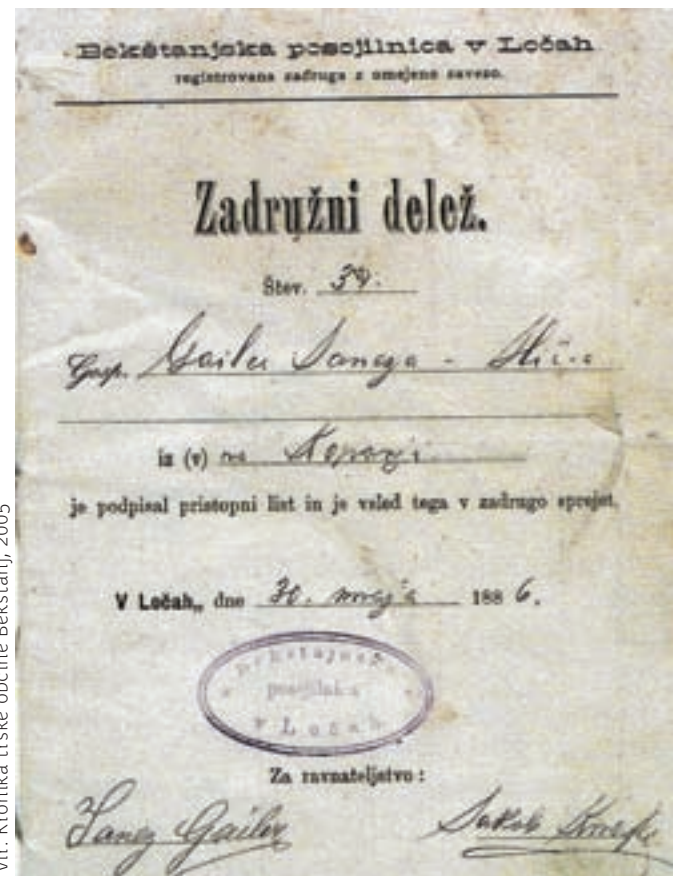 Bekštanjska posojilnica v Ločah
registrovana zadruga z omejeno zavezo.
Zadružni delež.
Štev. 39.
Gosp. Gailer Janeza -
iz (v) na
je podpisal pristopni list in je vsled tega v zadrugo sprejet.
V Ločah, dne 30. maja 1886.
posojilnica
v Ločah
Za ravnateljstvo:
Janez Gailer Jakob
Vir: Kronika trške občine Bekštanj, 2005